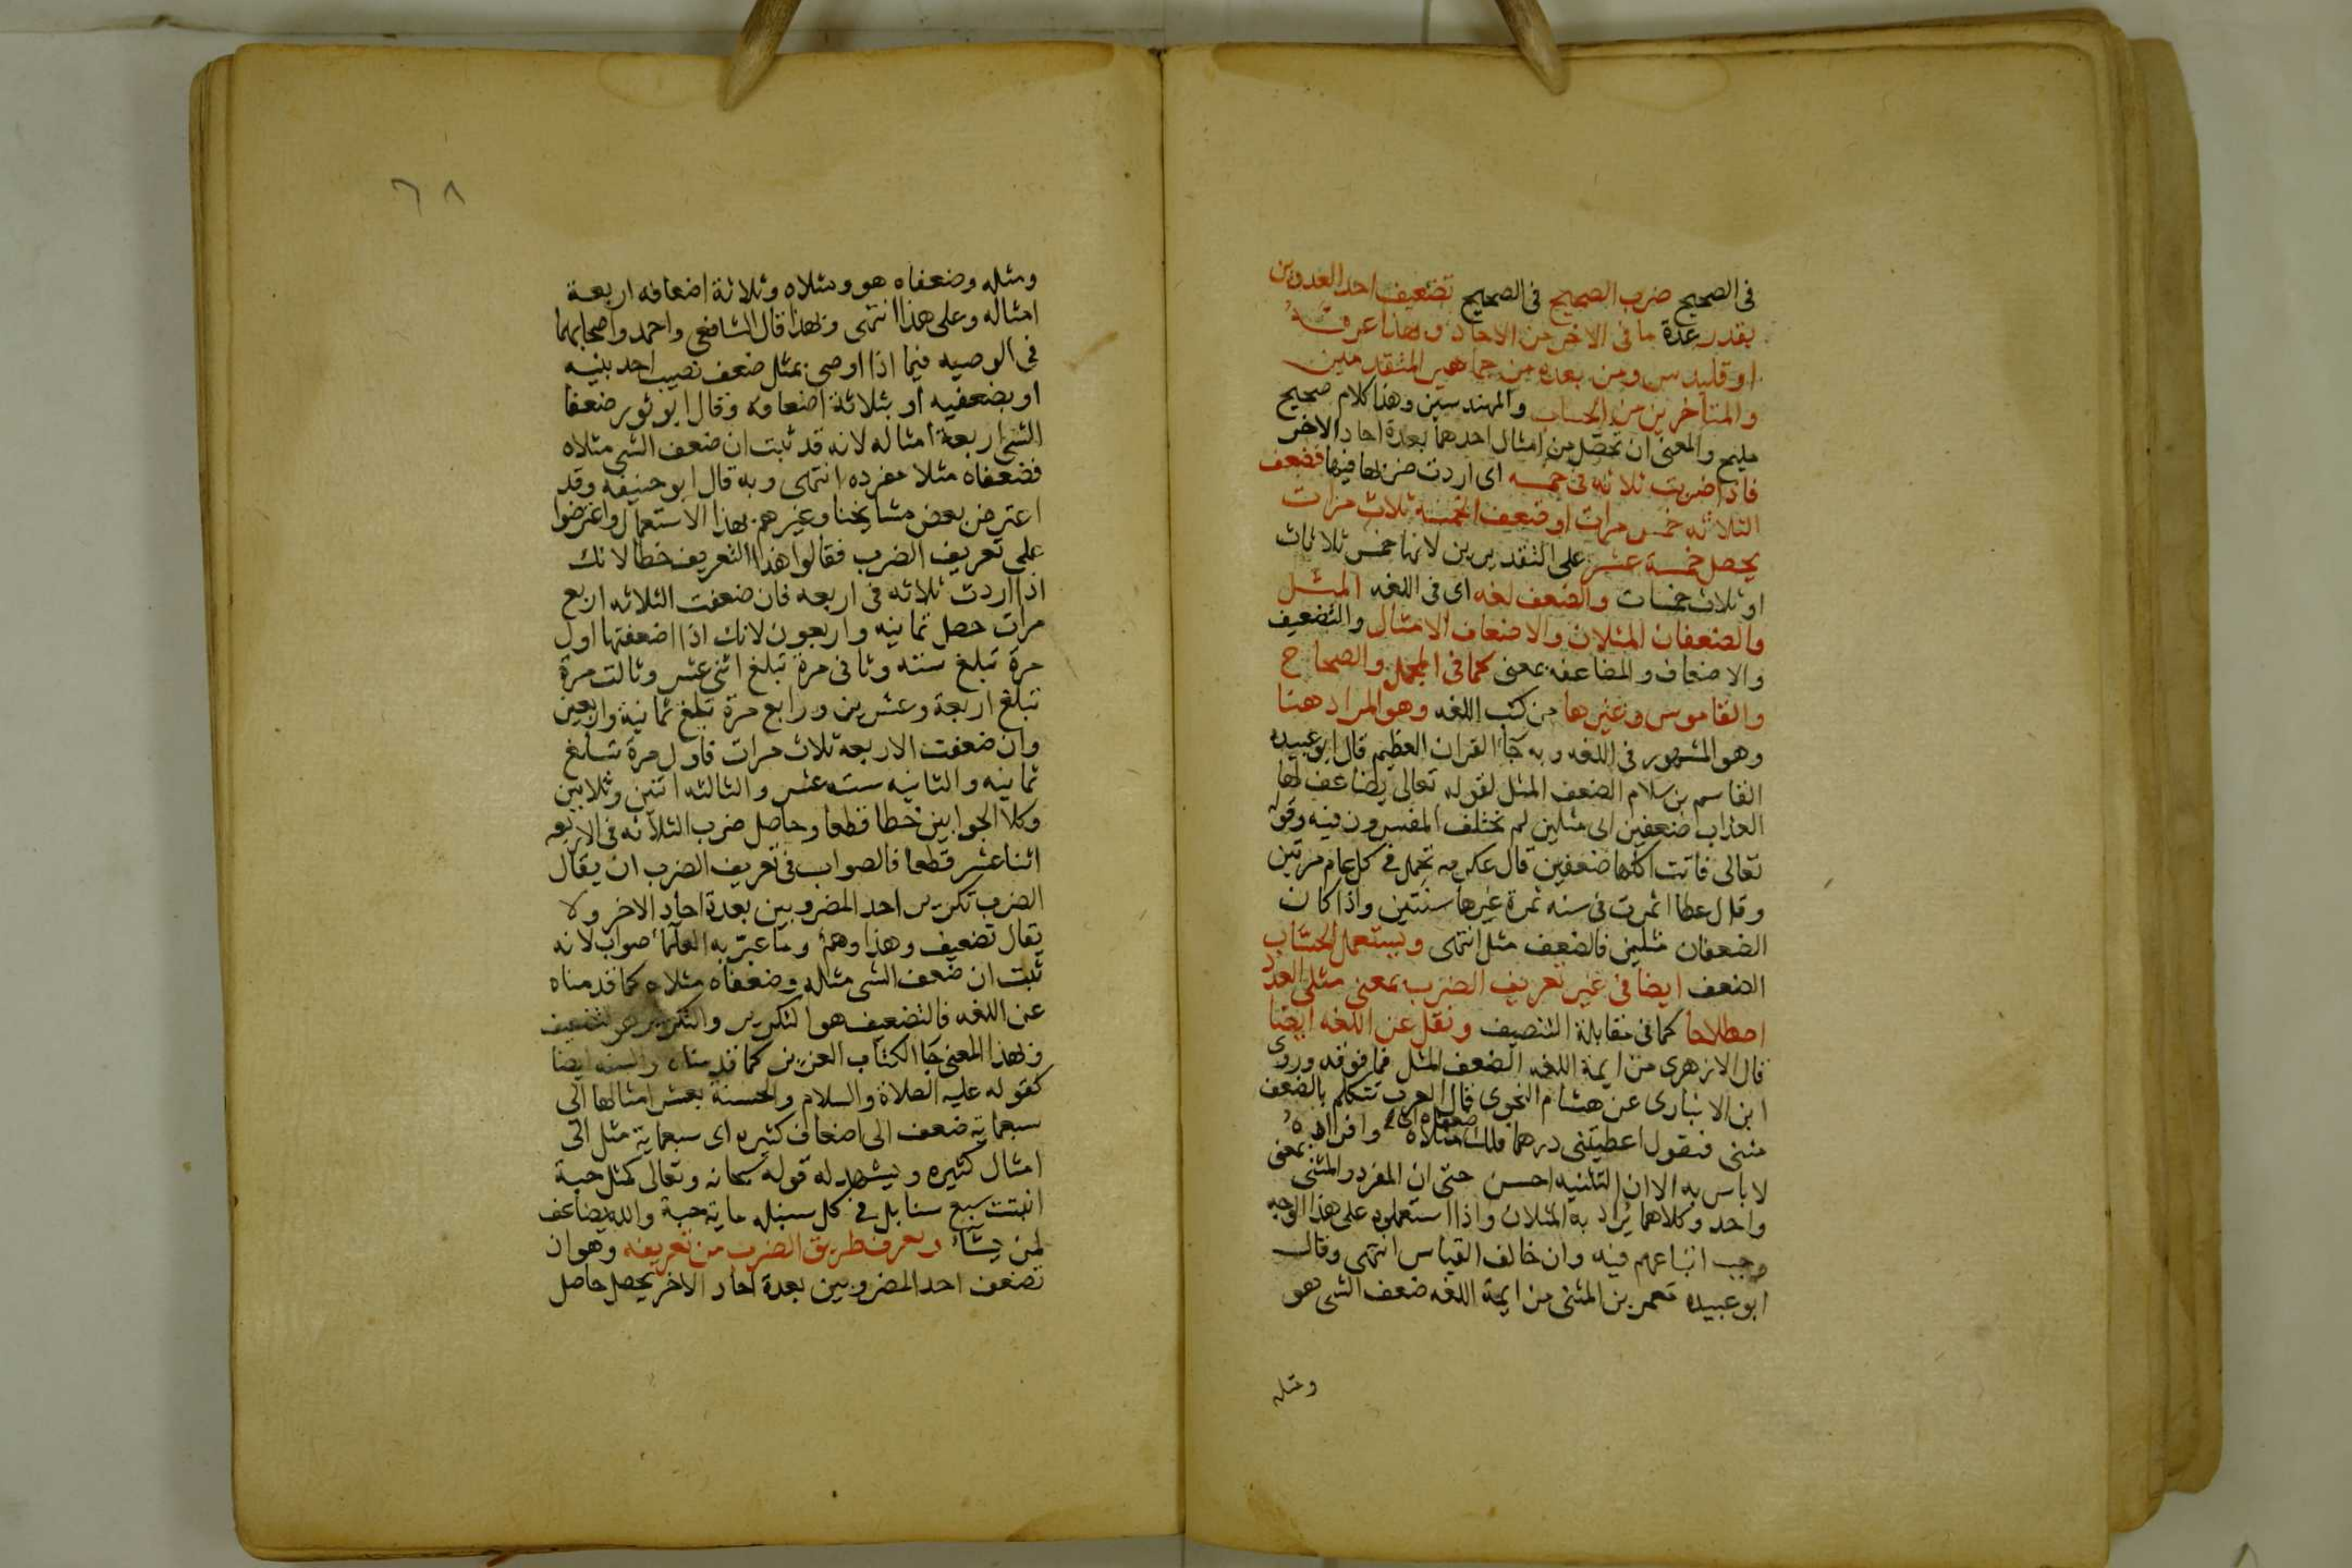 في الصحيح ضرب الصحيح في الصحيح تضعيف احد العددين
بقدر عدة ما في الاخر من الاحاد وبهذا عرفه
اوقليدس ومن بعده من جماهير المتقدمين
والمتاخرين من الحساب والمهندسين وهذا كلام صحيح
مليح والمعنى ان تحصل من امثال احدهما بعدة احاد الاخر
فاذا ضربت ثلاثه في خمسه اى اردت ضربها فيها فضعف
الثلاثه خمس مرات او ضعف الخمسة ثلاث مرات
يحصل خمسة عشر على التقديرين لانها خمس ثلاثات
او ثلاث خمسات والضعف لغه اى في اللغه المثل
والضعفان المثلان والاضعاف الامثال والتضعيف
والاضعاف والمضاعفه بمعنى كما في المجمل والصحاح
والقاموس وغيرها من كتب اللغه وهو المراد هنا
وهو المشهور في اللغه وبه جا القران العظيم قال ابو عبيده
القاسم بن سلام الضعف المثل لقوله تعالى يضاعف لها
العذاب ضعفين اى مثلين لم تختلف المفسرون فيه وقوله
تعالى فاتت اكلها ضعفين قال عكرمه تحمل في كل عام مرتين
وقال عطا اثمرت في سنه ثمرة غيرها سنتين واذا كان
الضعفان مثلين فالضعف مثل انتهى ويستعمل الحساب
الضعف ايضا في غير تعريف الضرب بمعنى مثلى العدد
اصطلاحا كما في مقابلة التنصيف ونقل عن اللغه ايضا
قال الازهرى من ايمة اللغه الضعف المثل فما فوقه وروى
ابن الانبارى عن هشام النحوى قال العرب تتكلم بالضعف
مثنى فتقول اعطيتنى درهما فلك ضعفاه اى مثلاه وافراده
لا باس به الا ان التثنيه احسن حتى ان المفرد والمثنى بمعنى
واحد وكلاهما يراد به المثلان واذا استعملوه على هذا الوجه
وجب اتباعهم فيه وان خالف القياس انتهى وقال
ابو عبيده معمر بن المثنى من ايمة اللغه ضعف الشى هو
ومثله
٦٨
ومثله وضعفاه هو ومثلاه وثلاثة اضعافه اربعة
امثاله وعلى هذا انتهى وبهذا قال الشافعي واحمد واصحابهما
في الوصيه فيما اذا اوصى بمثل ضعف نصيب احد بنيه
او بضعفيه او بثلاثة اضعافه وقال ابو ثور ضعفا
الشى اربعة امثاله لانه قد ثبت ان ضعف الشى مثلاه
فضعفاه مثلا مفرده انتهى وبه قال ابو حنيفه وقد
اعترض بعض مشايخنا وغيرهم بهذا الاستعمال واعترضوا
على تعريف الضرب فقالوا هذا التعريف خطا لانك
اذا اردت ثلاثه في اربعه فان ضعفت الثلاثه اربع
مرات حصل ثمانيه واربعون لانك اذا اضعفتها اول
مرة تبلغ سته وثاني مرة تبلغ اثنى عشر وثالث مرة
تبلغ اربعة وعشرين ورابع مرة تبلغ ثمانية واربعين
وان ضعفت الاربعه ثلاث مرات فاول مرة تبلغ
ثمانيه والثانيه سته عشر والثالثه اثنين وثلاثين
وكلا الجوابين خطا قطعا وحاصل ضرب الثلاثه في الاربعه
اثنا عشر قطعا فالصواب في تعريف الضرب ان يقال
الضرب تكرير احد المضروبين بعدة احاد الاخر ولا
يقال تضعيف وهذا وهم وما عبر به العلما صواب لانه
ثبت ان ضعف الشى مثاله وضعفاه مثلاه كما قدمناه
عن اللغه فالتضعيف هو التكرير والتكرير هو التضعيف
وبهذا المعنى جا الكتاب العزيز كما قدمناه والسنه ايضا
كقوله عليه الصلاة والسلام والحسنة بعشر امثالها الى
سبعماية ضعف الى اضعاف كثيره اى سبعماية مثل الى
امثال كثيره ويشهد له قوله سبحانه وتعالى كمثل حبة
انبتت سبع سنابل في كل سنبله ماية حبة والله يضاعف
لمن يشاء ويعرف طريق الضرب من تعريفه وهو ان
تضعف احد المضروبين بعدة احاد الاخر يحصل حاصل